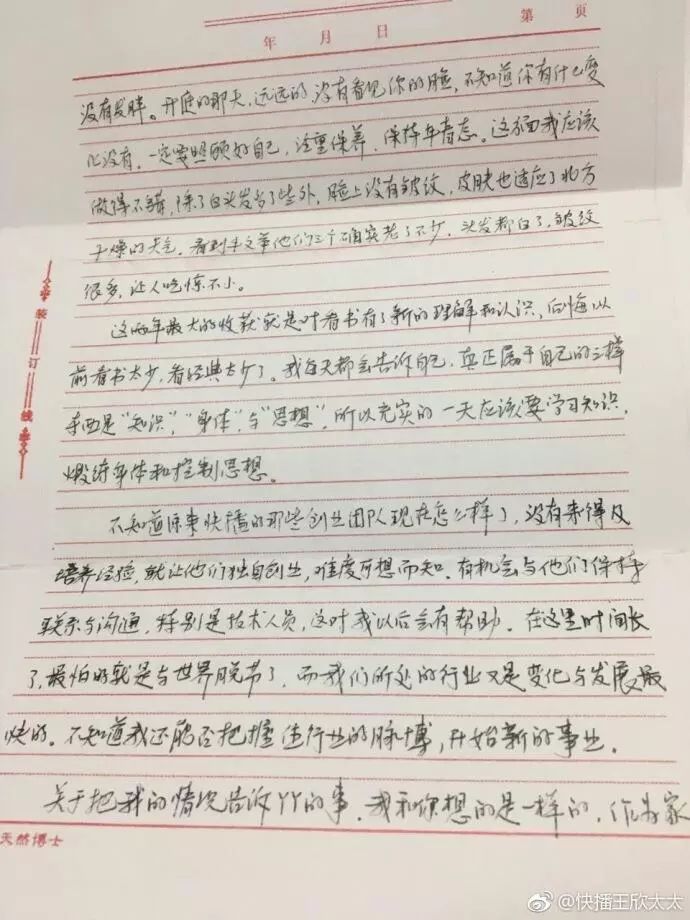 第 页
年 月 日
没有发胖。开庭的那天,远远的,没有看见你的脸,不知道你有什么变
化没有,一定要照顾好自己,注重保养,保持年青态。这方面我应该
做得不错,除了白头发多了些外,脸上没有皱纹,皮肤也适应了北方
干燥的天气。看到牛文举他们三个确实老了不少,头发都白了,皱纹
很多,让人吃惊不小。
这两年最大的收获就是对看书有了新的理解和认识,后悔以
前看书太少,看经典太少了。我每天都会告诉自己,真正属于自己的三样
东西是“知识”,“身体”与“思想”,所以充实的一天应该要学习知识,
煅练身体和控制思想。
不知道原来快播的那些创业团队现在怎么样了,没有来得及
培养经验,就让他们独自创业,难度可想而知。有机会与他们保持
联系与沟通,特别是技术人员,这对我以后会有帮助。在这里时间长
了,最怕的就是与世界脱节了,而我们所处的行业又是变化与发展最
快的。不知道我还能否把握住行业的脉博,开始新的事业。
关于把我的情况告诉丫丫的事,我和你想的是一样的,作为家
装
订
线
天然博士
@快播王欣太太